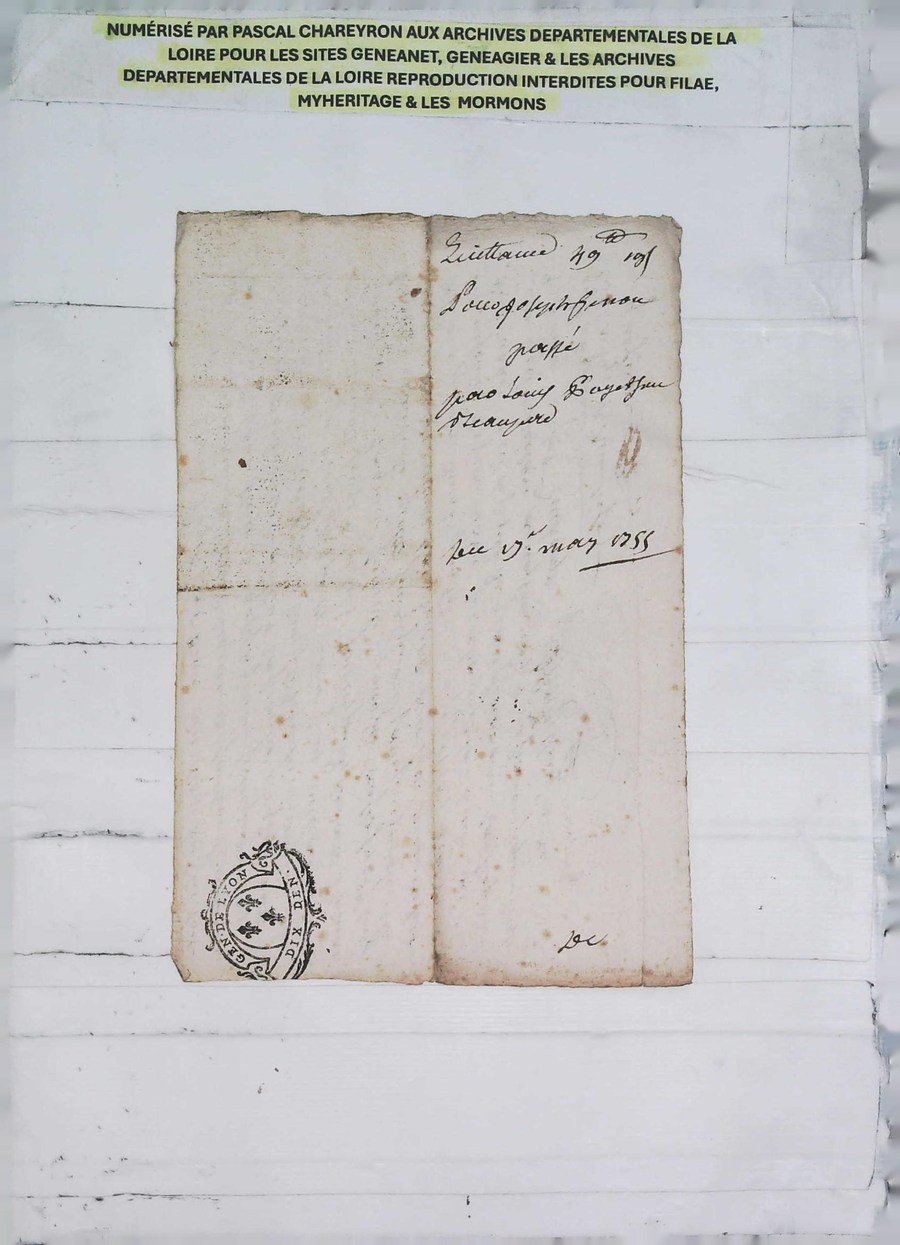 NUMÉRISÉ PAR PASCAL CHAREYRON AUX ARCHIVES DEPARTEMENTALES DE LA
LOIRE POUR LES SITES GENEANET, GENEAGIER & LES ARCHIVES
DEPARTEMENTALES DE LA LOIRE REPRODUCTION INTERDITES POUR FILAE,
MYHERITAGE & LES MORMONS
Quittance 49
Pour Joseph
passé
par Louis
may 1755
GEN. DE LYON
DIX DEN.